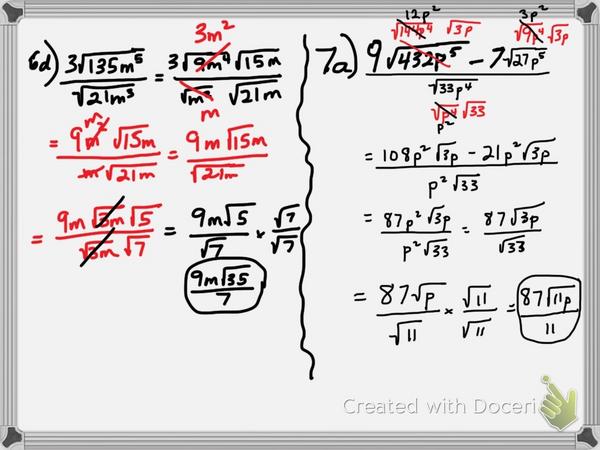 6d) 3√135m⁵ / √21m³ = 3√9m⁴ √15m / √m² √21m
3m²
m
= 9m² √15m / m√21m = 9m√15m / √21m
m
= 9m√3m √5 / √3m √7 = 9m√5 / √7 × √7 / √7
9m√35 / 7
12p² 3p²
√144p⁴ √3p √9p⁴ √3p
7a) 9√432p⁵ − 7√27p⁵ / √33p⁴
√p⁴ √33
p²
= 108p²√3p − 21p²√3p / p²√33
= 87p²√3p / p²√33 = 87√3p / √33
= 87√p / √11 × √11 / √11 = 87√11p / 11
Created with Doceri